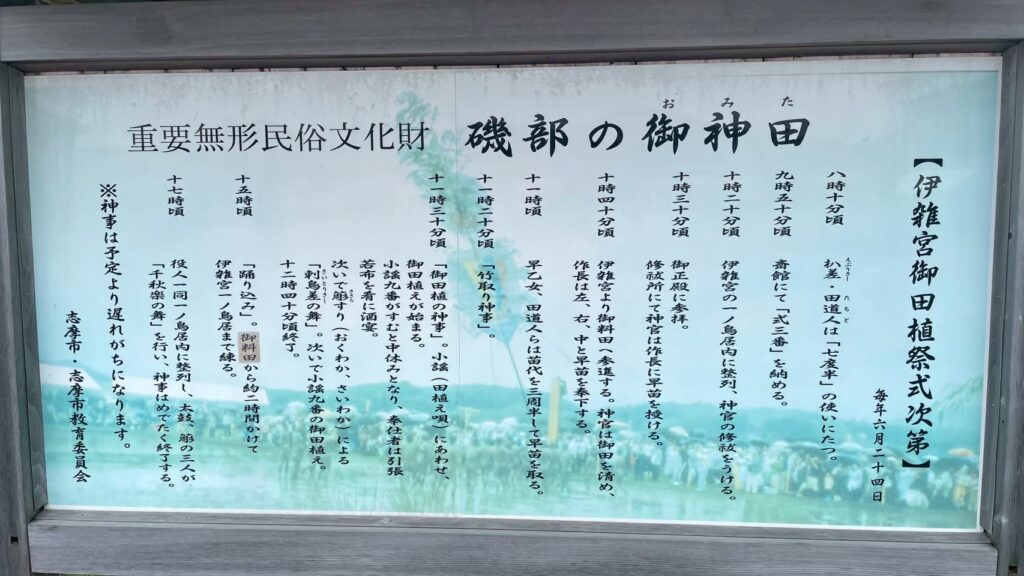 重要無形民俗文化財 磯部の御神田
おみた
【伊雑宮御田植祭式次第】
毎年六月二十四日
八時十分頃 杁差・田道人は「七度半」の使いにたつ。
えぶりさし たちど
九時五十分頃 斎館にて「式三番」を納める。
十時二十分頃 伊雑宮の一ノ鳥居内に整列、神宮の修祓をうける。
十時三十分頃 御正殿に参拝。
修祓所にて神官は作長に早苗を授ける。
十時四十分頃 伊雑宮より御料田へ参進する。神官は御田を清め、
作長は左、右、中と早苗を奉下する。
十一時頃 早乙女、田道人らは苗代を三周半して早苗を取る。
十一時二十分頃 「竹取り神事」。
十一時三十分頃 「御田植の神事」。小謡（田植え唄）にあわせ、
御田植えが始まる。
小謡九番がすむと中休みとなり、奉仕者は引張
若布を肴に酒宴。
次いで簓すり（おくわか、さいわか）による
ささら
「刺鳥差の舞」。次いで小謡九番の御田植え。
さいとりさし
十二時四十分頃終了。
十五時頃 「踊り込み」。御料田から約二時間かけて
伊雑宮一ノ鳥居まで練る。
十七時頃 役人一同一ノ鳥居内に整列し、太鼓、簓の三人が
「千秋楽の舞」を行い、神事はめでたく終了する。
※神事は予定より遅れがちになります。
志摩市・志摩市教育委員会